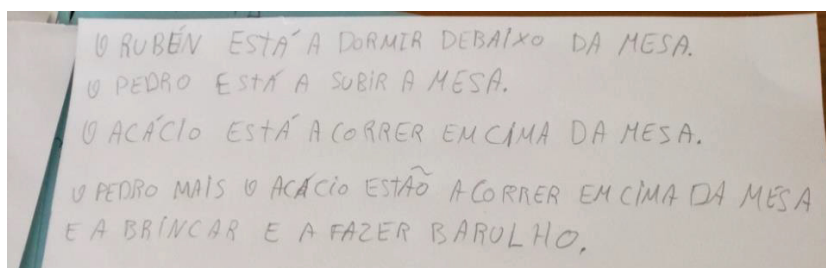 O RUBÉN ESTÁ A DORMIR DEBAIXO DA MESA.
O PEDRO ESTÁ A SUBIR A MESA.
O ACÁCIO ESTÁ A CORRER EM CIMA DA MESA.
O PEDRO MAIS O ACÁCIO ESTÃO A CORRER EM CIMA DA MESA
E A BRINCAR E A FAZER BARULHO.